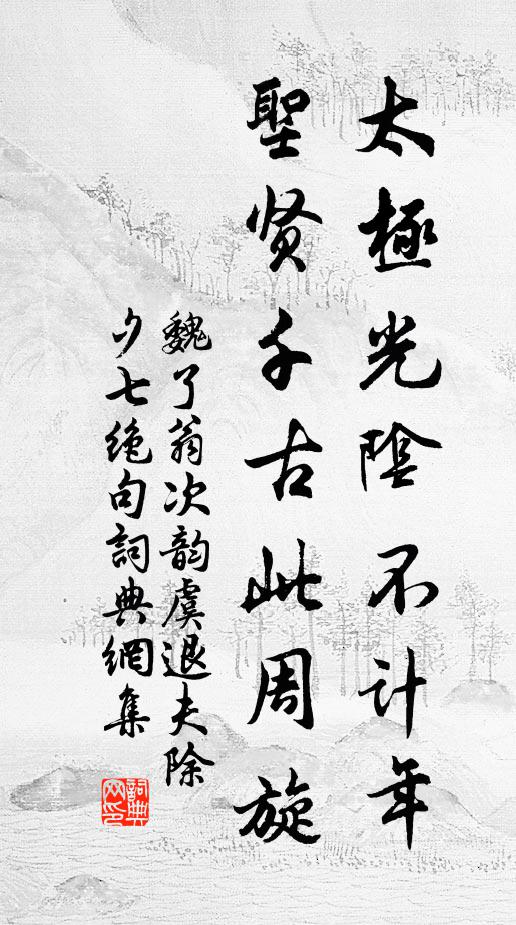 太極光陰不計年
聖贤千古此周旋
魏了翁次韵虞退夫除
夕七绝句詞典網集
詞典网印